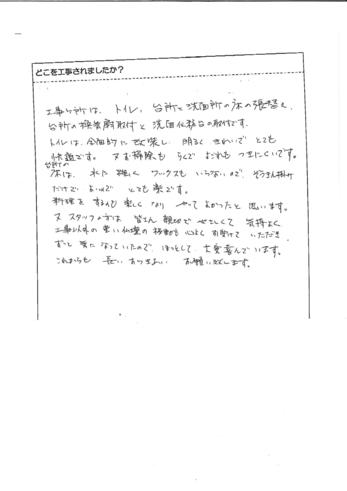 どこを工事されましたか?
工事ヶ所は、トイレ、台所と洗面所の床の張替え、
台所の換気扇取付と洗面化粧台の取付です。
トイレは全面的に改装し明るくきれいでとても
快適です。又お掃除もらくでよごれもつきにくいです。
台所の
床は、水に強くワックスもいらないので、ぞうきん掛け
だけでよいのでとても楽です。
料理をするのも楽しくなりやってよかったと思います。
又スタッフの方は皆さん親切でやさしくて気持よく
工事以外の重い仏壇の移動も心よく引受けていただき
ずっと気になっていたのでほっとして大変喜んでいます。
これからも長いおつきあいお願い致します。